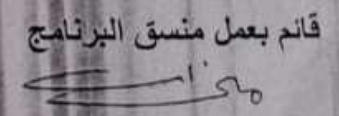 قائم بعمل منسق البرنامج